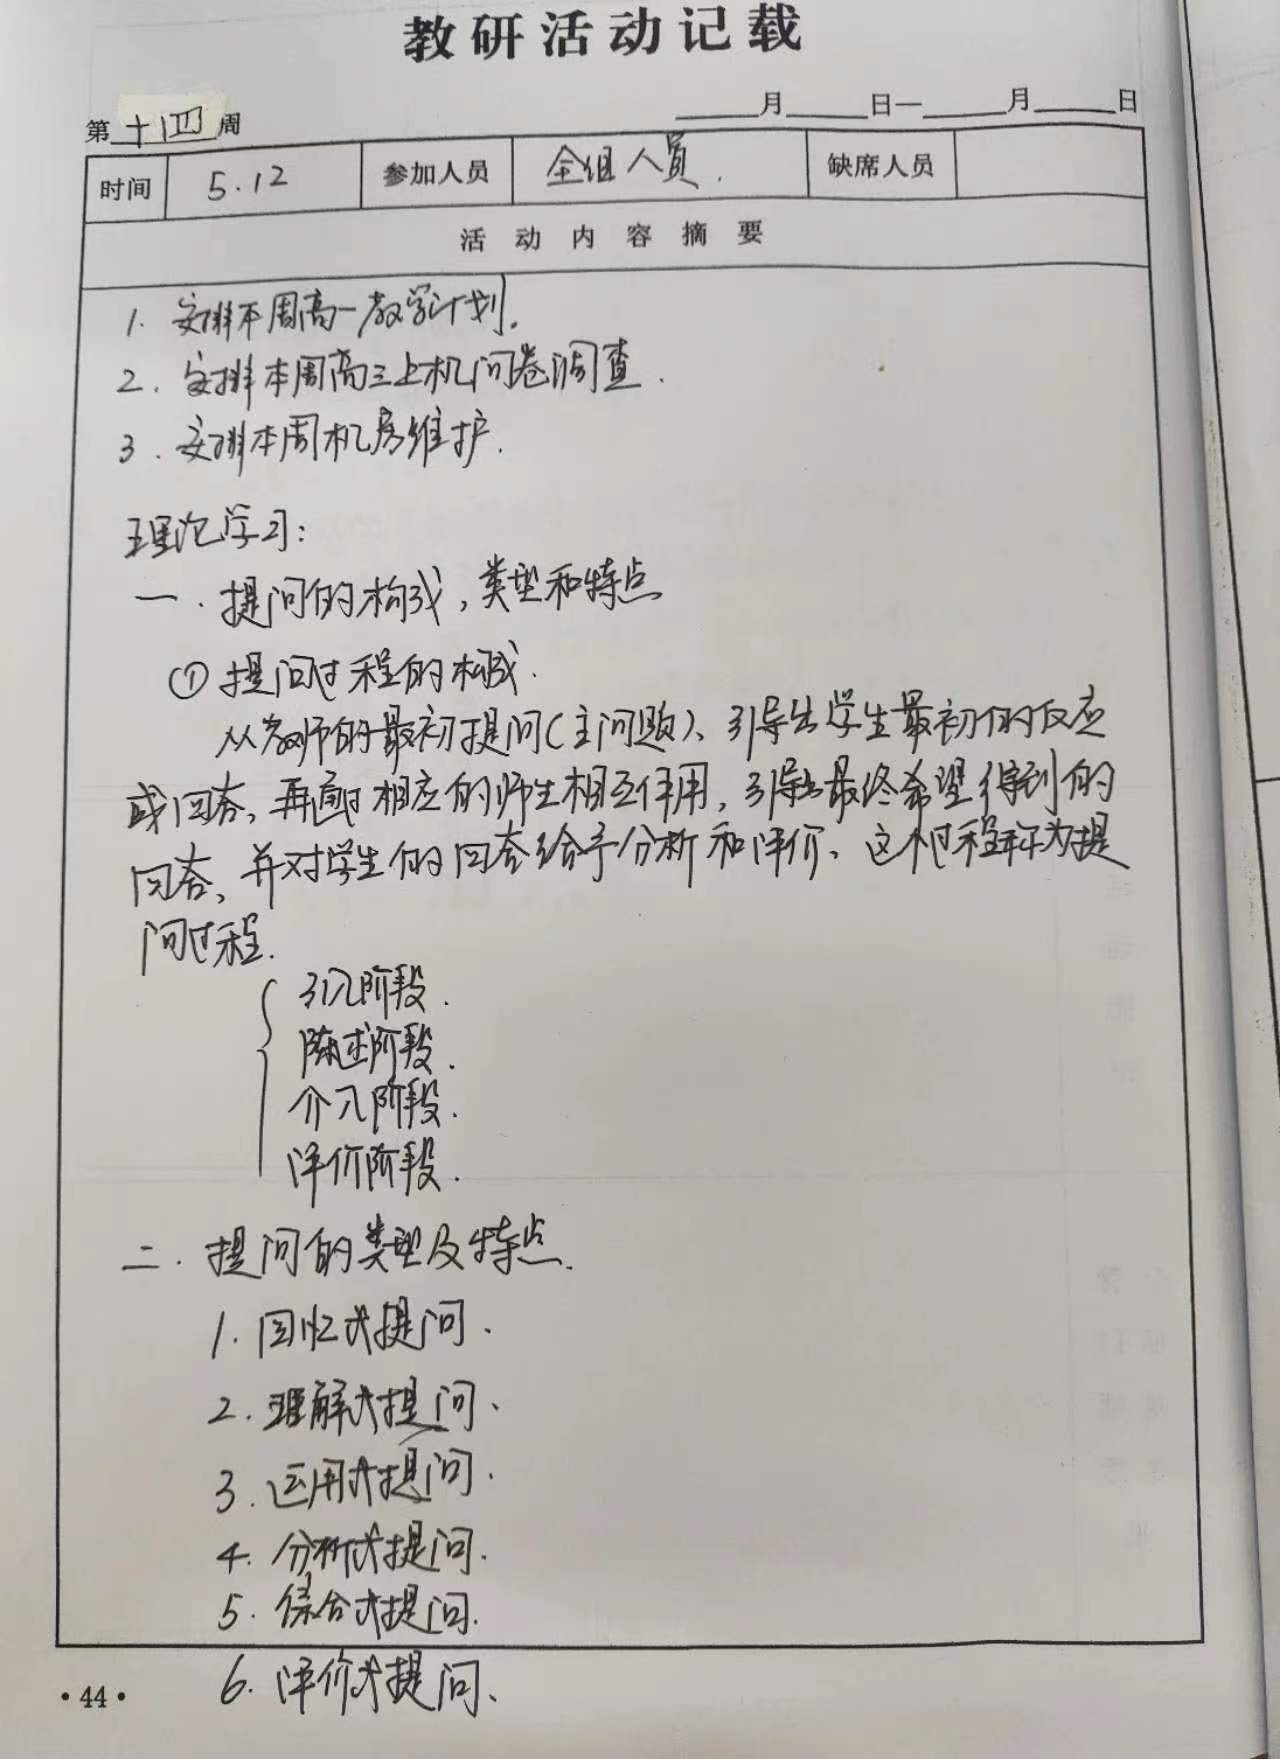 教研活动记载
第十四周 ____月____日—____月____日
时间 5.12 参加人员 全组人员. 缺席人员
活动内容摘要
1. 安排本周高一教学计划.
2. 安排本周高三上机问卷调查.
3. 安排本周机房维护.
理论学习:
一. 提问的构成,类型和特点
① 提问过程的构成.
从教师的最初提问(主问题)、引导出学生最初的反应
或回答,再通过相应的师生相互作用,引导出最终希望得到的
回答,并对学生的回答给予分析和评价、这个过程称为提
问过程.
引入阶段.
陈述阶段.
介入阶段.
评价阶段.
二. 提问的类型及特点.
1. 回忆式提问.
2. 理解式提问、
3. 运用式提问.
4. 分析式提问.
5. 综合式提问.
6. 评价式提问、
·44·